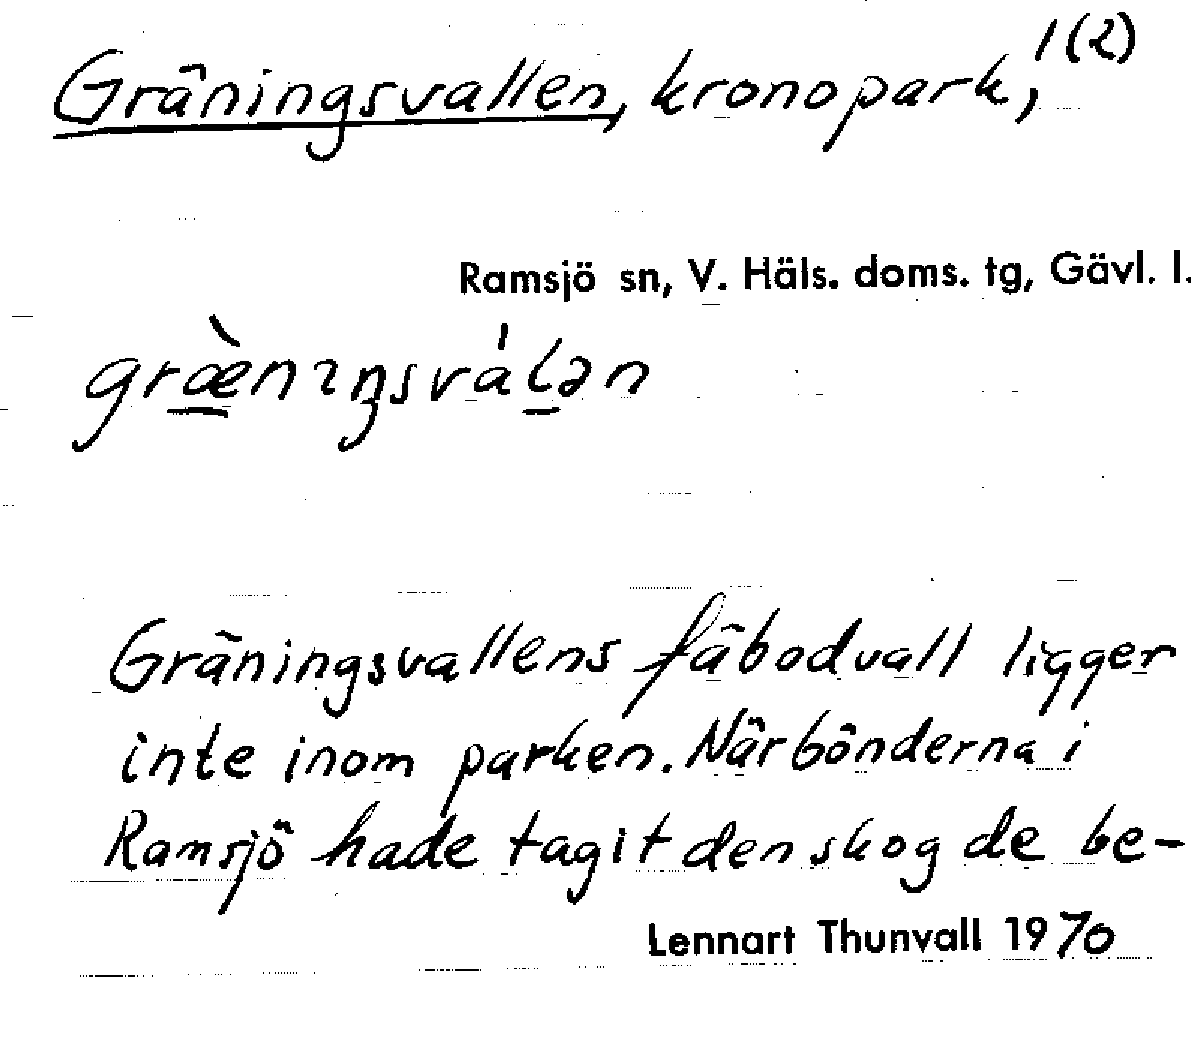 Gräningsvallen, kronopark, 1(2)
Ramsjö sn, V. Häls. doms. tg, Gävl. l.
græ̀nıŋsválən
Gräningsvallens fäbodvall ligger
inte inom parken. När bönderna i
Ramsjö hade tagit den skog de be-
Lennart Thunvall 1970